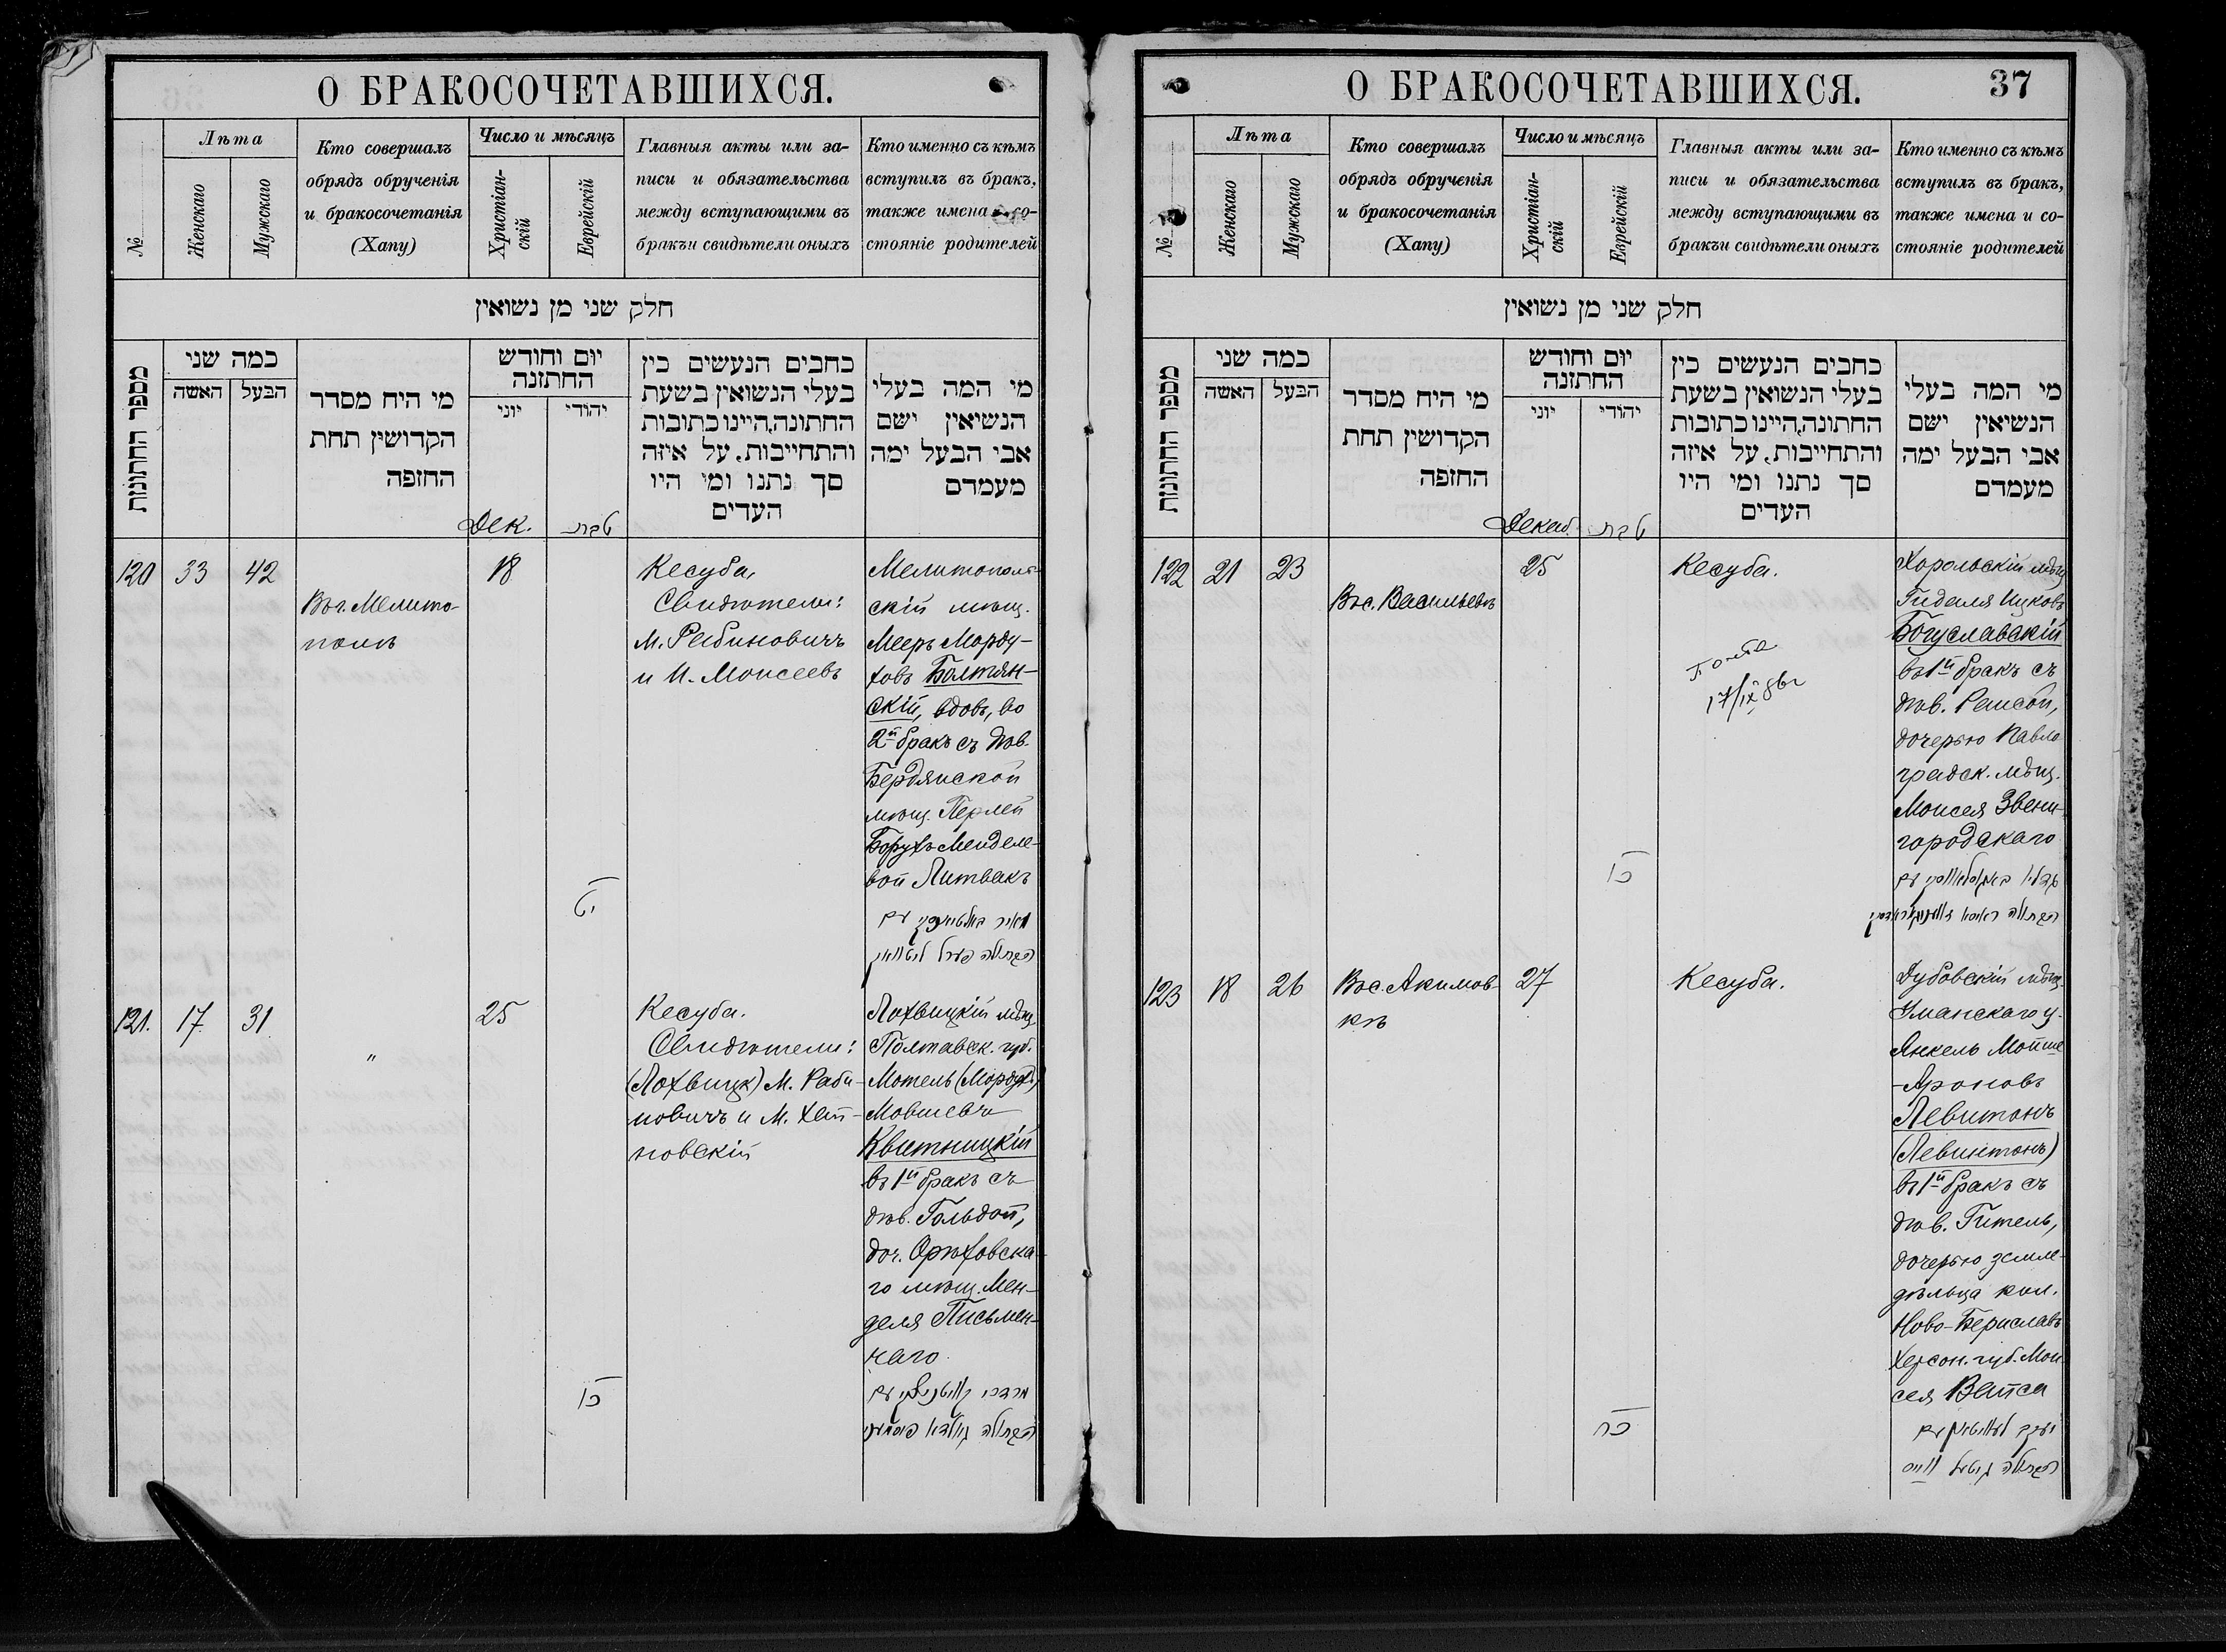 О БРАКОСОЧЕТАВШИХСЯ.
№
Лѣта
Женскаго
Мужскаго
Кто совершалъ
обрядъ обрученія
и бракосочетанія
(Хапу)
Число и мѣсяцъ
Христіан-
скій
Еврейскій
Главныя акты или за-
писи и обязательства
между вступающими въ
бракъ и свидѣтели оныхъ
Кто именно съ кѣмъ
вступилъ въ бракъ,
также имена и со-
стояніе родителей
חלק שני מן נשואין
מספר החתונות
כמה שני
האשה
הבעל
מי היה מסדר
הקדושין תחת
החופה
יום וחודש
החתונה
יוני
יהודי
כתבים הנעשים בין
בעלי הנשואין בשעת
החתונה, היינו כתובות
והתחייבות, על איזה
סך נתנו ומי היו
העדים
מי המה בעלי
הנשיאין ישם
אבי הבעל ימה
מעמדם
Дек.
טבת
120
33
42
Въ г. Мелито-
полѣ
18
יט
Кесуба,
Свидѣтели:
М. Рабиновичъ
и И. Моисеевъ
Мелитополь-
скій мѣщ.
Мееръ Морду-
ховъ Балтян-
скій, вдовъ, во
2й бракъ съ дѣв.
Бердянской
мѣщ. Перлей
Борухъ Менделе-
вой Литвакъ
מאיר באלטיאנסקי עם
הבתולה פערל ליטוואק
121.
17
31
"
25
כו
Кесуба.
Свидѣтели:
(Лохвицк) М. Раби-
новичъ и М. Хай-
новскій
Лохвицкій мѣщ.
Полтавск. губ.
Мотель (Мордух.)
Мовшевъ
Квитницкій
въ 1й бракъ съ
дѣв. Гольдой,
доч. Орѣховска-
го мѣщ. Мен-
деля Письмен-
наго
מרדכי קוויטניצקי עם
הבתולה גאלדא
О БРАКОСОЧЕТАВШИХСЯ.
37
№
Лѣта
Женскаго
Мужскаго
Кто совершалъ
обрядъ обрученія
и бракосочетанія
(Хапу)
Число и мѣсяцъ
Христіан-
скій
Еврейскій
Главныя акты или за-
писи и обязательства
между вступающими въ
бракъ и свидѣтели оныхъ
Кто именно съ кѣмъ
вступилъ въ бракъ,
также имена и со-
стояніе родителей
חלק שני מן נשואין
מספר החתונות
כמה שני
האשה
הבעל
מי היה מסדר
הקדושין תחת
החופה
יום וחודש
החתונה
יוני
יהודי
כתבים הנעשים בין
בעלי הנשואין בשעת
החתונה, היינו כתובות
והתחייבות, על איזה
סך נתנו ומי היו
העדים
מי המה בעלי
הנשיאין ישם
אבי הבעל ימה
מעמדם
Декаб.
טבת
122
21
23
Въ с. Васильевкѣ
25
כו
Кесуба.
Хорольскій мѣщ.
Гидаля Ицковъ
Богуславскій
въ 1й бракъ съ
дѣв. Раисой,
дочерью Павло-
градск. мѣщ.
Моисея Звени-
городскаго
גדליה באגוסלאווסקי עם
הבתולה ראיסא
123
18
26
Въ с. Акимов-
кѣ
27
כח
Кесуба.
Дубовскій мѣщ.
Уманскаго у.
Янкель Мойше
-Ароновъ
Левитонъ
(Левинтонъ)
въ 1й бракъ съ
дѣв. Гитель,
дочерью земле-
дѣльца кол.
Ново-Бериславъ
Херсон. губ. Мои-
сея Вайса
יעקב לעוויטאן עם
הבתולה גיטל ווייס